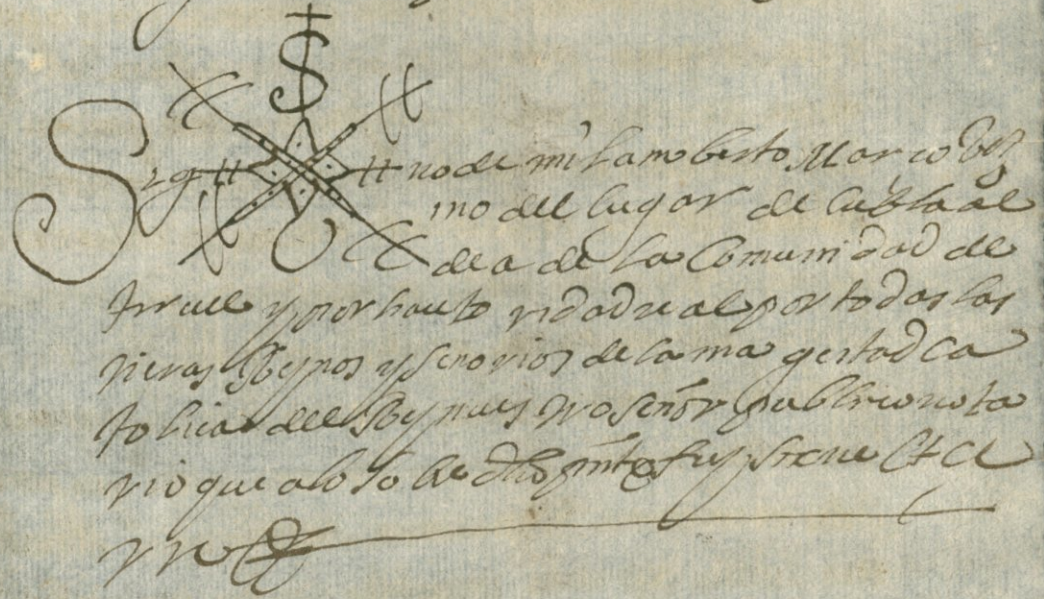 Sig no de mi Lamberto Marco Vez
ino del lugar de Cubla al
dea de la Comunidad de
Teruel y por hauto ridad real por todas las
tieras Reynos y senorios de la ma gestad ca
tolica del Rey nues tro señor publico nota
rio que a lo so bre dho pnte fuy signe Et ce
rre